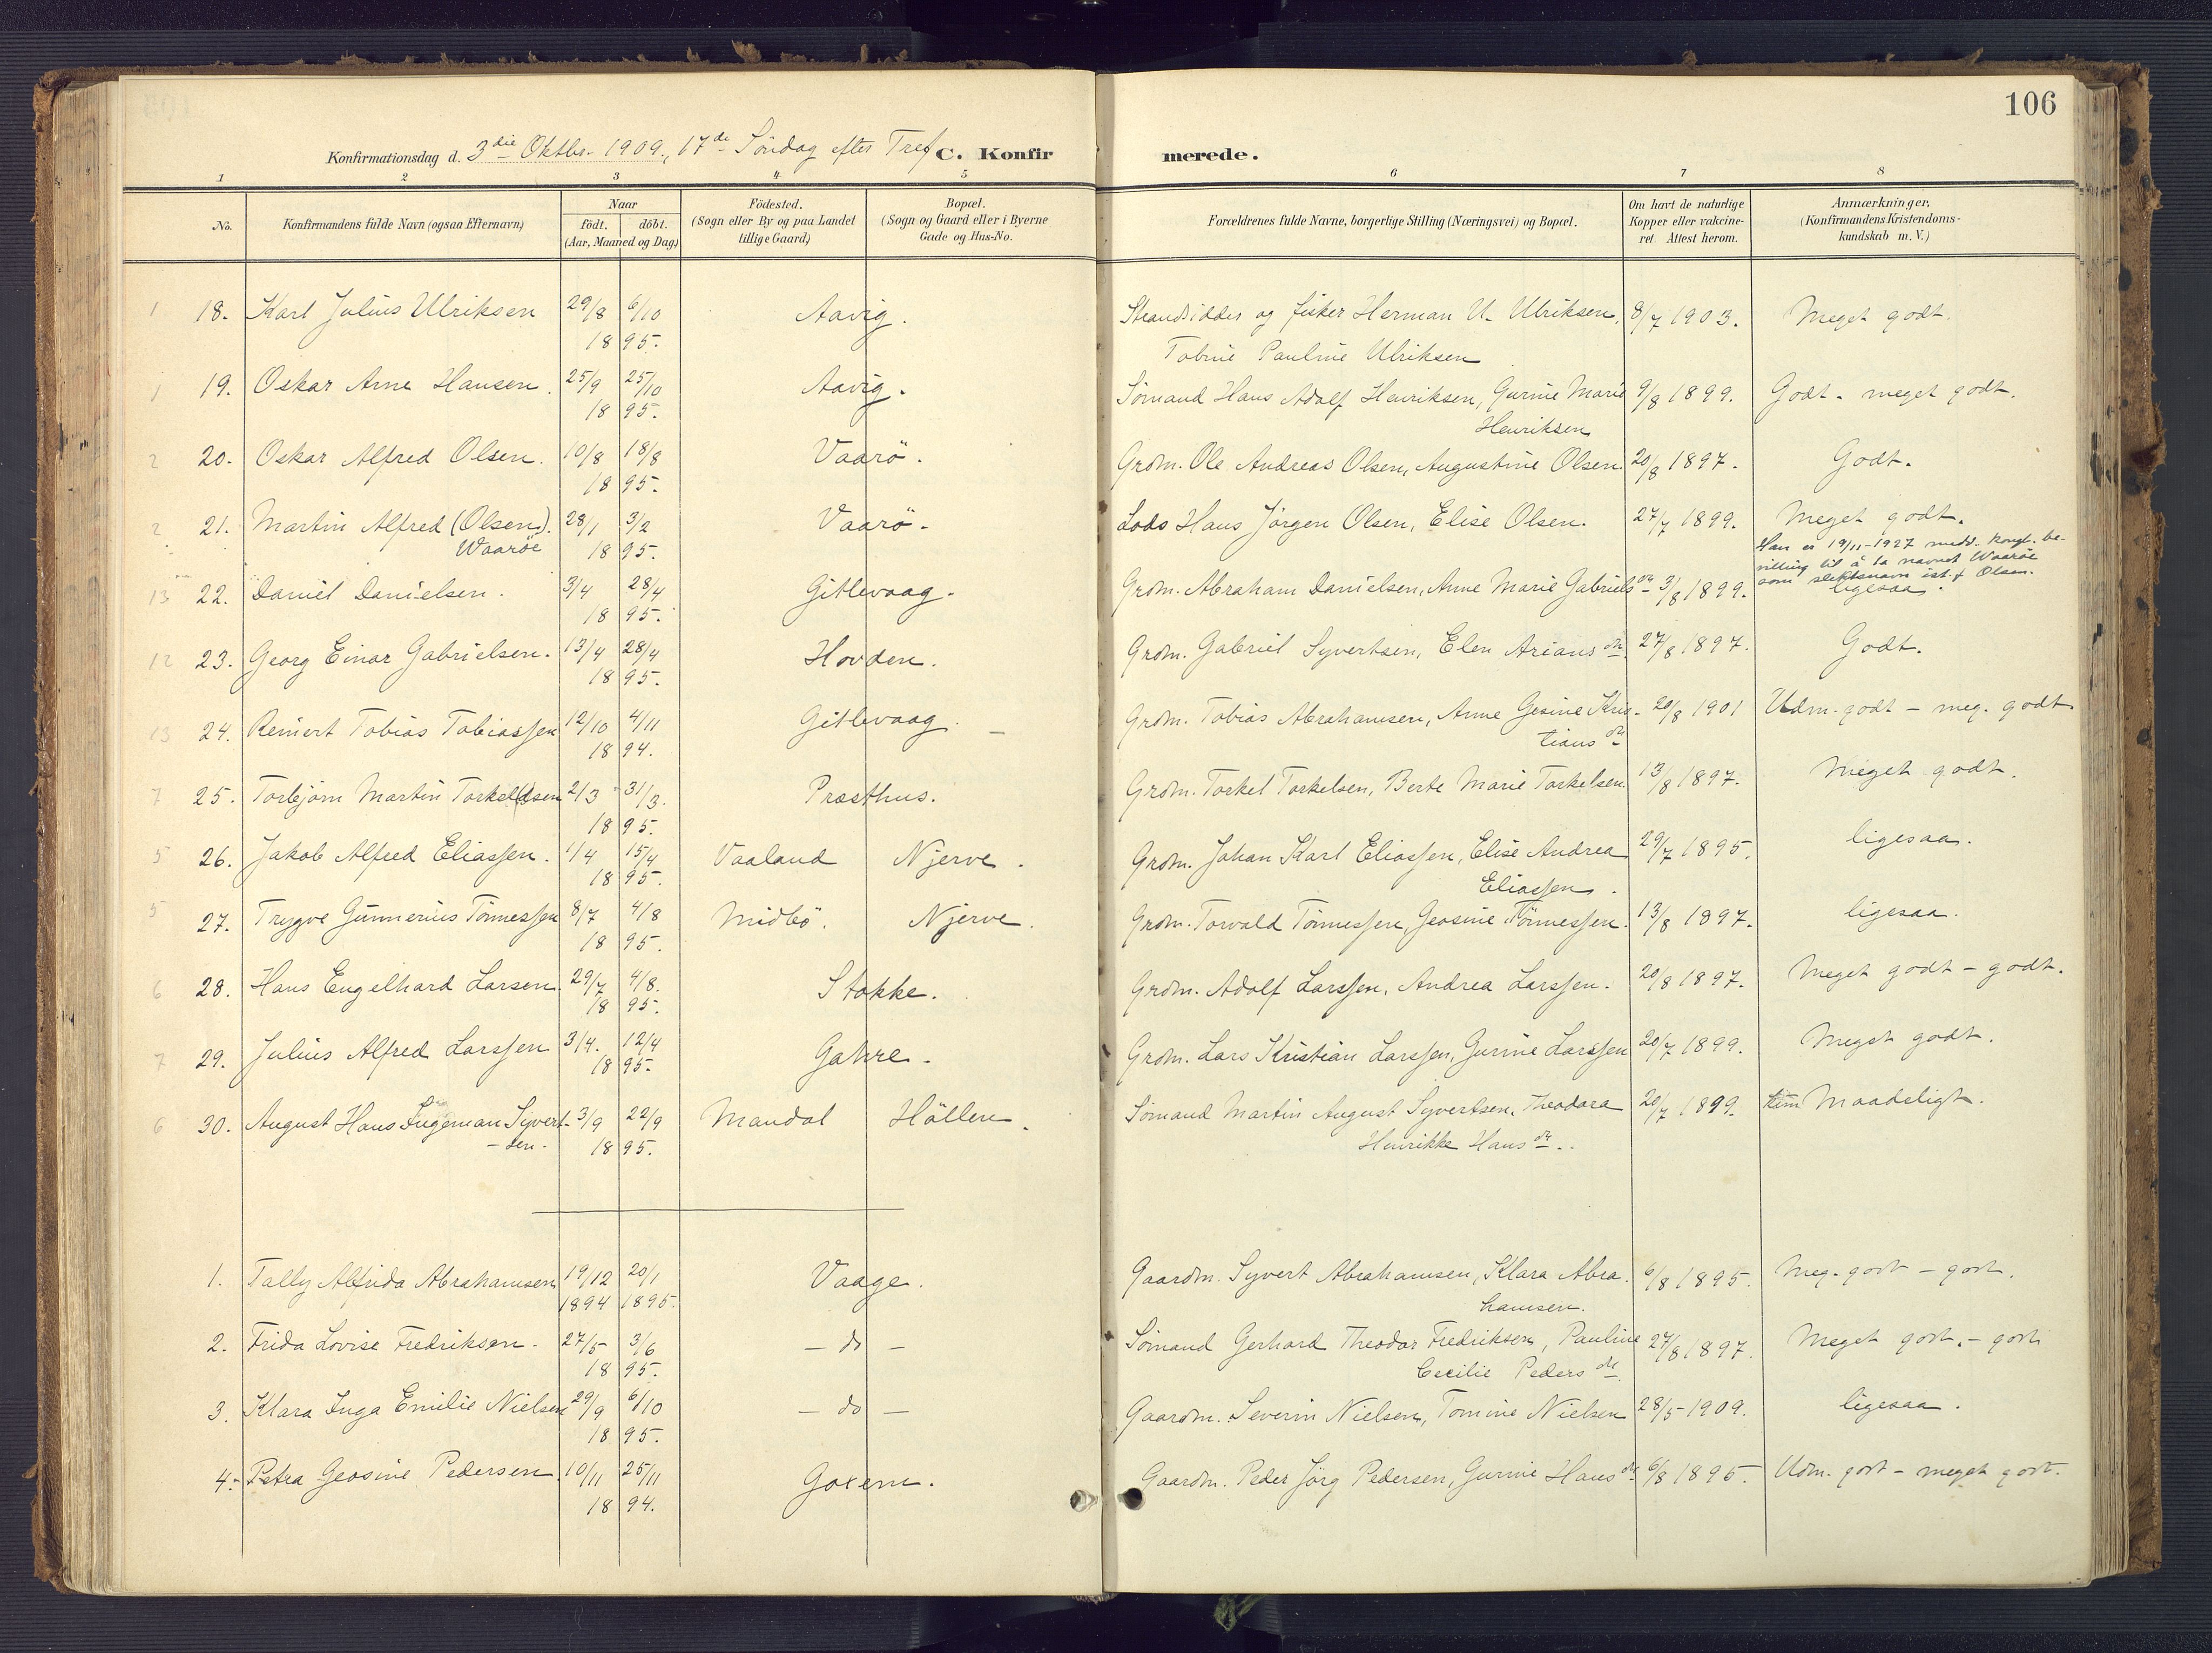 106
Konfirmationsdag d. 3die Oktbr. 1909, 17de Söndag efter Tref. C. Konfirmerede.
1 2 3 4 5 6 7 8
No. Konfirmandens fulde Navn (ogsaa Efternavn) Naar födt. döbt. (Aar, Maaned og Dag) Födested. (Sogn eller By og paa Landet tillige Gaard) Bopæl. (Sogn og Gaard eller i Byerne Gade og Hus-No. Forældrenes fulde Navne, borgerlige Stilling (Næringsvei) og Bopæl. Om havt de naturlige Kopper eller vakcineret. Attest herom. Anmærkninger. (Konfirmandens Kristendomskundskab m. V.)
1 18. Karl Julius Ulriksen 29/8 6/10 Aavig. Strandsidder og fisker Herman U. Ulriksen, 8/7 1903. Meget godt.
18 95. Tobine Pauline Ulriksen
1 19. Oskar Arne Hansen. 25/9 25/10 Aavig. Sömand Hans Adolf Henriksen, Gurine Marie 9/8 1899. Godt - meget godt.
18 95. Henriksen
2 20. Oskar Alfred Olsen. 10/8 18/8 Vaarö. Grdm. Ole Andreas Olsen, Augustine Olsen. 20/8 1897. Godt.
18 95.
2 21. Martin Alfred (Olsen). 28/1 3/2 Vaarö. Lods Hans Jörgen Olsen, Elise Olsen. 27/7 1899. Meget godt.
Waaröe 18 95. Han er 19/11-1927 medd. kongl. be-
villing til å ta navnet Waaröe
som slektsnavn ist. f. Olsen.
13 22. Daniel Danielsen. 3/4 28/4 Gitlevaag. Grdm. Abraham Danielsen, Anne Marie Gabrielsdr. 3/8 1899. ligesaa.
18 95.
12 23. Georg Einar Gabrielsen. 13/4 28/4 Hovden. Grdm. Gabriel Syvertsen, Elen Ariansdtr. 27/8 1897. Godt.
18 95.
13 24. Reinert Tobias Tobiassen 12/10 4/11 Gitlevaag. Grdm. Tobias Abrahamsen, Anne Gesine Kris- 20/8 1901 Udm. godt - meg. godt
18 94. tiansdtr
7 25. Torbjörn Martin Torkeldsen 2/3 31/3. Præsthus. Grdm. Torkel Torkelsen, Berte Marie Torkelsen. 13/8 1897. Meget godt.
18 95.
5 26. Jakob Alfred Eliassen. 1/4 15/4 Vaaland Njerve. Grdm. Johan Karl Eliassen, Elise Andrea 29/7 1895. ligesaa.
18 95. Eliassen.
5 27. Trygve Gunnerius Tönnessen 8/7 4/8 Midbö. Njerve. Grdm. Torvald Tönnessen, Geosine Tönnessen. 13/8 1897. ligesaa.
18 95.
6 28. Hans Engelhard Larsen. 29/7 4/8. Stokke. Grdm. Adolf Larssen, Andrea Larssen. 20/8 1897. Meget godt - godt.
18 95.
7 29. Julius Alfred Larssen 3/4. 12/4 Gahre. Grdm. Lars Kristian Larssen, Gurine Larssen 20/7 1899. Meget godt.
18 95.
6 30. August Hans Ingeman Syvert- 3/9 22/9 Mandal Höllen. Sömand Martin August Syvertsen, Theodora 20/7 1899. Maadeligt.
- sen. 18 95. Henrikke Hansdtr.
1. Tally Alfrida Abrahamsen 19/12 20/1 Vaage. Gaardm. Syvert Abrahamsen, Klara Abra- 6/8 1895. Meg. godt - godt.
1894 1895. hamsen.
2. Frida Lovise Fredriksen. 27/5 3/6 - do - Sömand Gerhard Theodor Fredriksen, Pauline 27/8 1897. Meget godt. - godt
18 95. Cecilie Pedersdtr.
3. Klara Inga Emilie Nielsen 29/9 6/10 - do - Gaardm. Severin Nielsen, Tomine Nielsen 28/5 1909. ligesaa.
18 95.
4. Petra Geosine Pedersen. 10/11 25/11 Goxem. Gaardm. Peder Jörg Pedersen, Gurine Hansdtr 6/8 1895. Udm. godt - meget godt.
18 94.